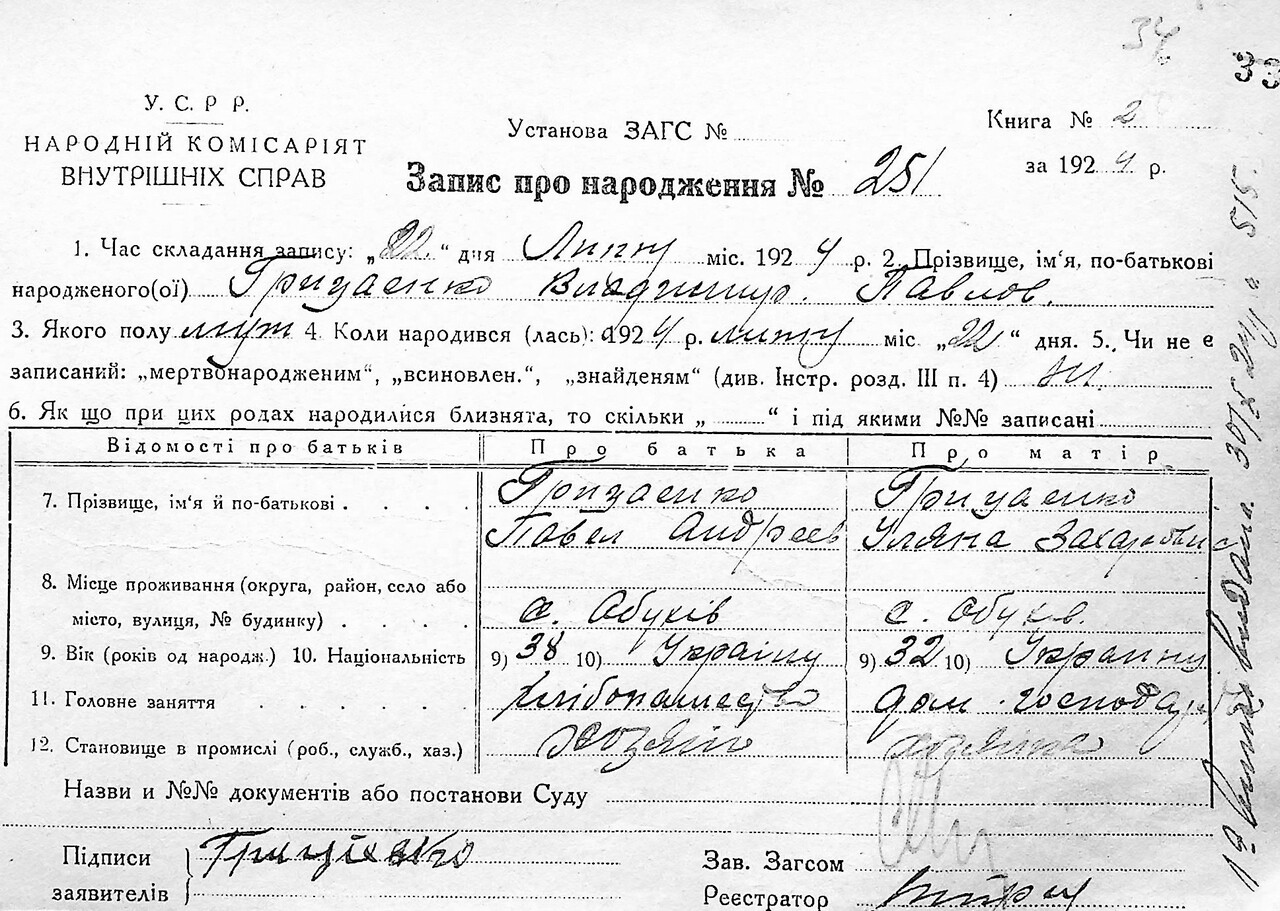 34
33
У. С. Р Р.
НАРОДНІЙ КОМІСАРІЯТ
ВНУТРІШНІХ СПРАВ
Установа ЗАГС №
Книга № 2
за 1924 р.
Запис про народження № 251
1. Час складання запису: „22“ дня Липну міс. 1924 р. 2. Прізвище, ім‘я, по-батькові
народженого(ої) Грицаенко Владимир. Павлов.
3. Якого полу муж 4. Коли народився (лась): 1924 р. липну міс „22“ дня. 5. Чи не є
записаний: „мертвонародженим“, „всиновлен.“, „знайденям“ (див. Інстр. розд. III п. 4) ні.
6. Як що при цих родах народилися близнята, то скільки „ “ і під якими №№ записані
Відомості про батьків Про батька Про матір
7. Прізвище, ім‘я й по-батькові . . . . Грицаенко Грицаенко
Павел Андреев Уляна Захаровна
8. Місце проживання (округа, район, село або
місто, вулиця, № будинку) . . . . с. Обухів с. Обухів.
9. Вік (років од народж.) 10. Національність 9) 38 10) Украіну 9) 32 10) Украину
11. Головне заняття . . . . . хлібопашество дом. господар
12. Становище в промислі (роб., служб., хаз.) хозяін хозяіка
Назви и №№ документів або постанови Суду
Підписи
заявителів
Грицаенко
Зав. Загсом
Реестратор
видана 515.